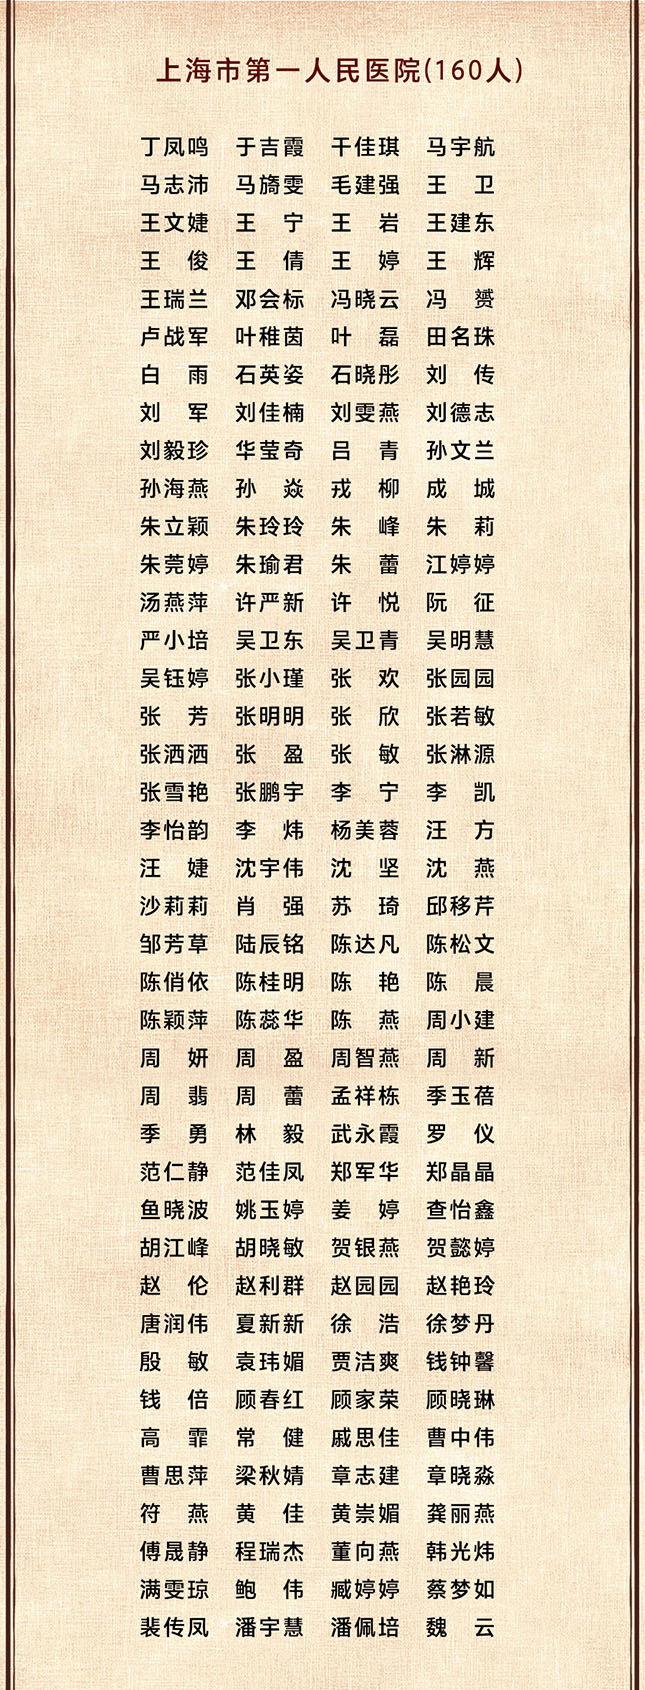 上海市第一人民医院(160人)
丁凤鸣 于吉霞 干佳琪 马宇航
马志沛 马旖雯 毛建强 王卫
王文婕 王宁 王岩 王建东
王俊 王倩 王婷 王辉
王瑞兰 邓会标 冯晓云 冯赟
卢战军 叶稚茵 叶磊 田名珠
白雨 石英姿 石晓彤 刘传
刘军 刘佳楠 刘雯燕 刘德志
刘毅珍 华莹奇 吕青 孙文兰
孙海燕 孙焱 戎柳 成城
朱立颖 朱玲玲 朱峰 朱莉
朱莞婷 朱瑜君 朱蕾 江婷婷
汤燕萍 许严新 许悦 阮征
严小培 吴卫东 吴卫青 吴明慧
吴钰婷 张小瑾 张欢 张园园
张芳 张明明 张欣 张若敏
张洒洒 张盈 张敏 张淋源
张雪艳 张鹏宇 李宁 李凯
李怡韵 李炜 杨美蓉 汪方
汪婕 沈宇伟 沈坚 沈燕
沙莉莉 肖强 苏琦 邱移芹
邹芳草 陆辰铭 陈达凡 陈松文
陈俏依 陈桂明 陈艳 陈晨
陈颖萍 陈蕊华 陈燕 周小建
周妍 周盈 周智燕 周新
周翡 周蕾 孟祥栋 季玉蓓
季勇 林毅 武永霞 罗仪
范仁静 范佳凤 郑军华 郑晶晶
鱼晓波 姚玉婷 姜婷 查怡鑫
胡江峰 胡晓敏 贺银燕 贺懿婷
赵伦 赵利群 赵园园 赵艳玲
唐润伟 夏新新 徐浩 徐梦丹
殷敏 袁玮媚 贾洁爽 钱钟馨
钱倍 顾春红 顾家荣 顾晓琳
高霏 常健 戚思佳 曹中伟
曹思萍 梁秋婧 章志建 章晓淼
符燕 黄佳 黄崇媚 龚丽燕
傅晟静 程瑞杰 董向燕 韩光炜
满雯琼 鲍伟 臧婷婷 蔡梦如
裴传凤 潘宇慧 潘佩培 魏云